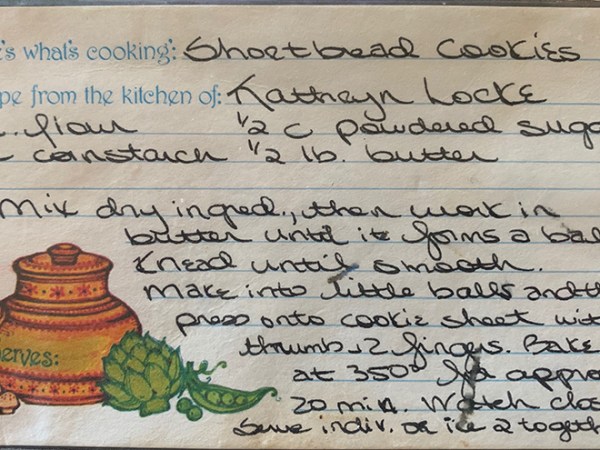 's what's cooking: Shortbread Cookies
pe from the kitchen of: Kathryn Locke
. flour 1/2 c powdered suga
cornstarch 1/2 lb. butter
Mix dry ingred., then work in
butter until it forms a bal
Knead until smooth.
Make into little balls and th
press onto cookie sheet wit
thumb + 2 fingers. Bake
at 350° for appro
20 min. Watch clos
Serve indiv. or ice 2 togeth
erves: